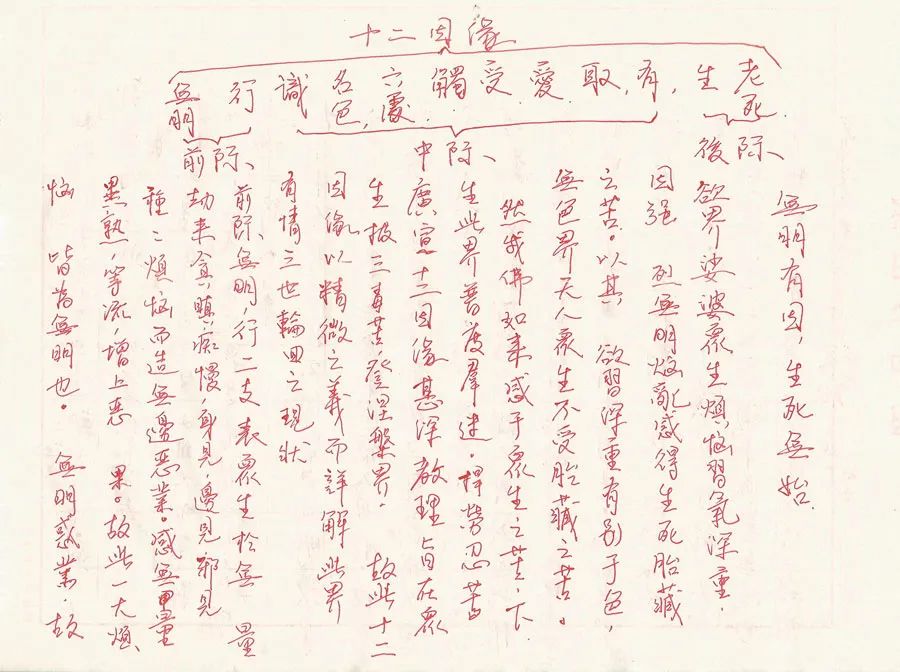 十二因緣
無明 行 識 名色 六處 觸 受 愛 取 有 生 老死
前際 中際 後際
無明有因，生死無始
欲界娑婆眾生煩惱習氣深重，
因強 烈無明煩亂感得生死胎藏
之苦。以其 欲習深重有別于色，
無色界天人眾生不受胎藏之苦。
然我佛如來感于眾生之苦，下
生此界普度群迷。捍勞忍苦
中廣宣十二因緣甚深教理旨在眾
生报三毒苦，登涅槃界。 故此十二
因緣，以精微之義而詳解 此界
有情三世輪回之現狀
前際無明，行二支表眾生於無 量
劫来貪，瞋，痴慢，身見，邊見邪見
種種煩惱而造無邊惡業。感無量
異熟，等流，增上惡 果。故此一大煩
惱 皆為無明也。 無明惑業，故